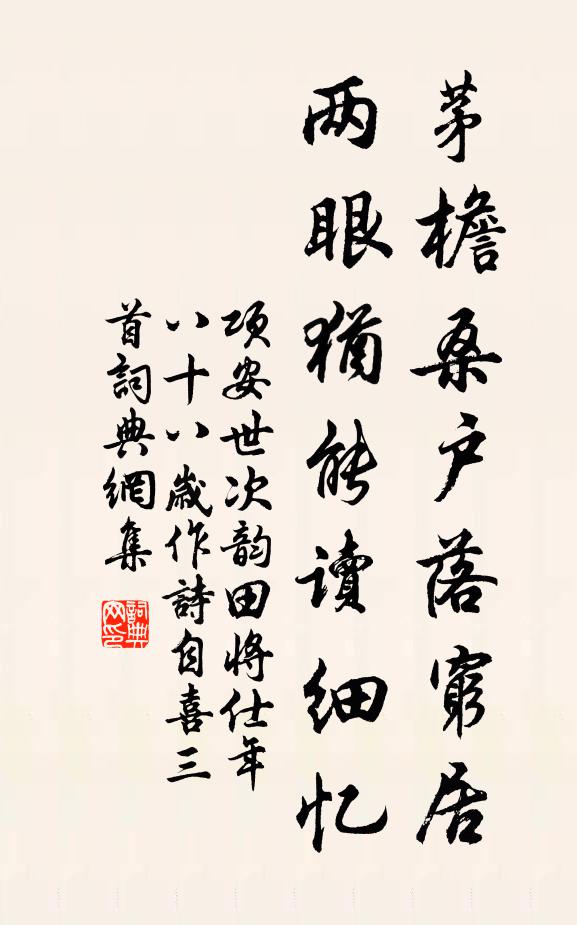 茅檐桑户落窮居
两眼猶能讀细忆
项安世次韵田将仕年
八十八歲作詩自喜三
首詞典網集
詞典网印